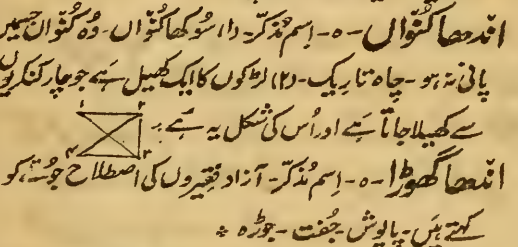 اندھا کنُواں - ہ - اِسم مُذکّر - (۱) سُوکھا کنُواں - وُہ کنُواں جسمیں
پانی نہ ہو - چاہِ تاریک - (۲) لڑکوں کا ایک کھیل ہَے جو چار کنکریوں
سے کھیلا جاتا ہَے اور اُس کی شکل یہ ہَے :-
۱ ۲ ۳ ۴
اندھا گھوڑا - ہ - اِسم مُذکّر - آزاد فقیروں کی اصطلاح جوُتے کو
کہتے ہَیں - پاپوش - جُفت - جوڑہ ٭